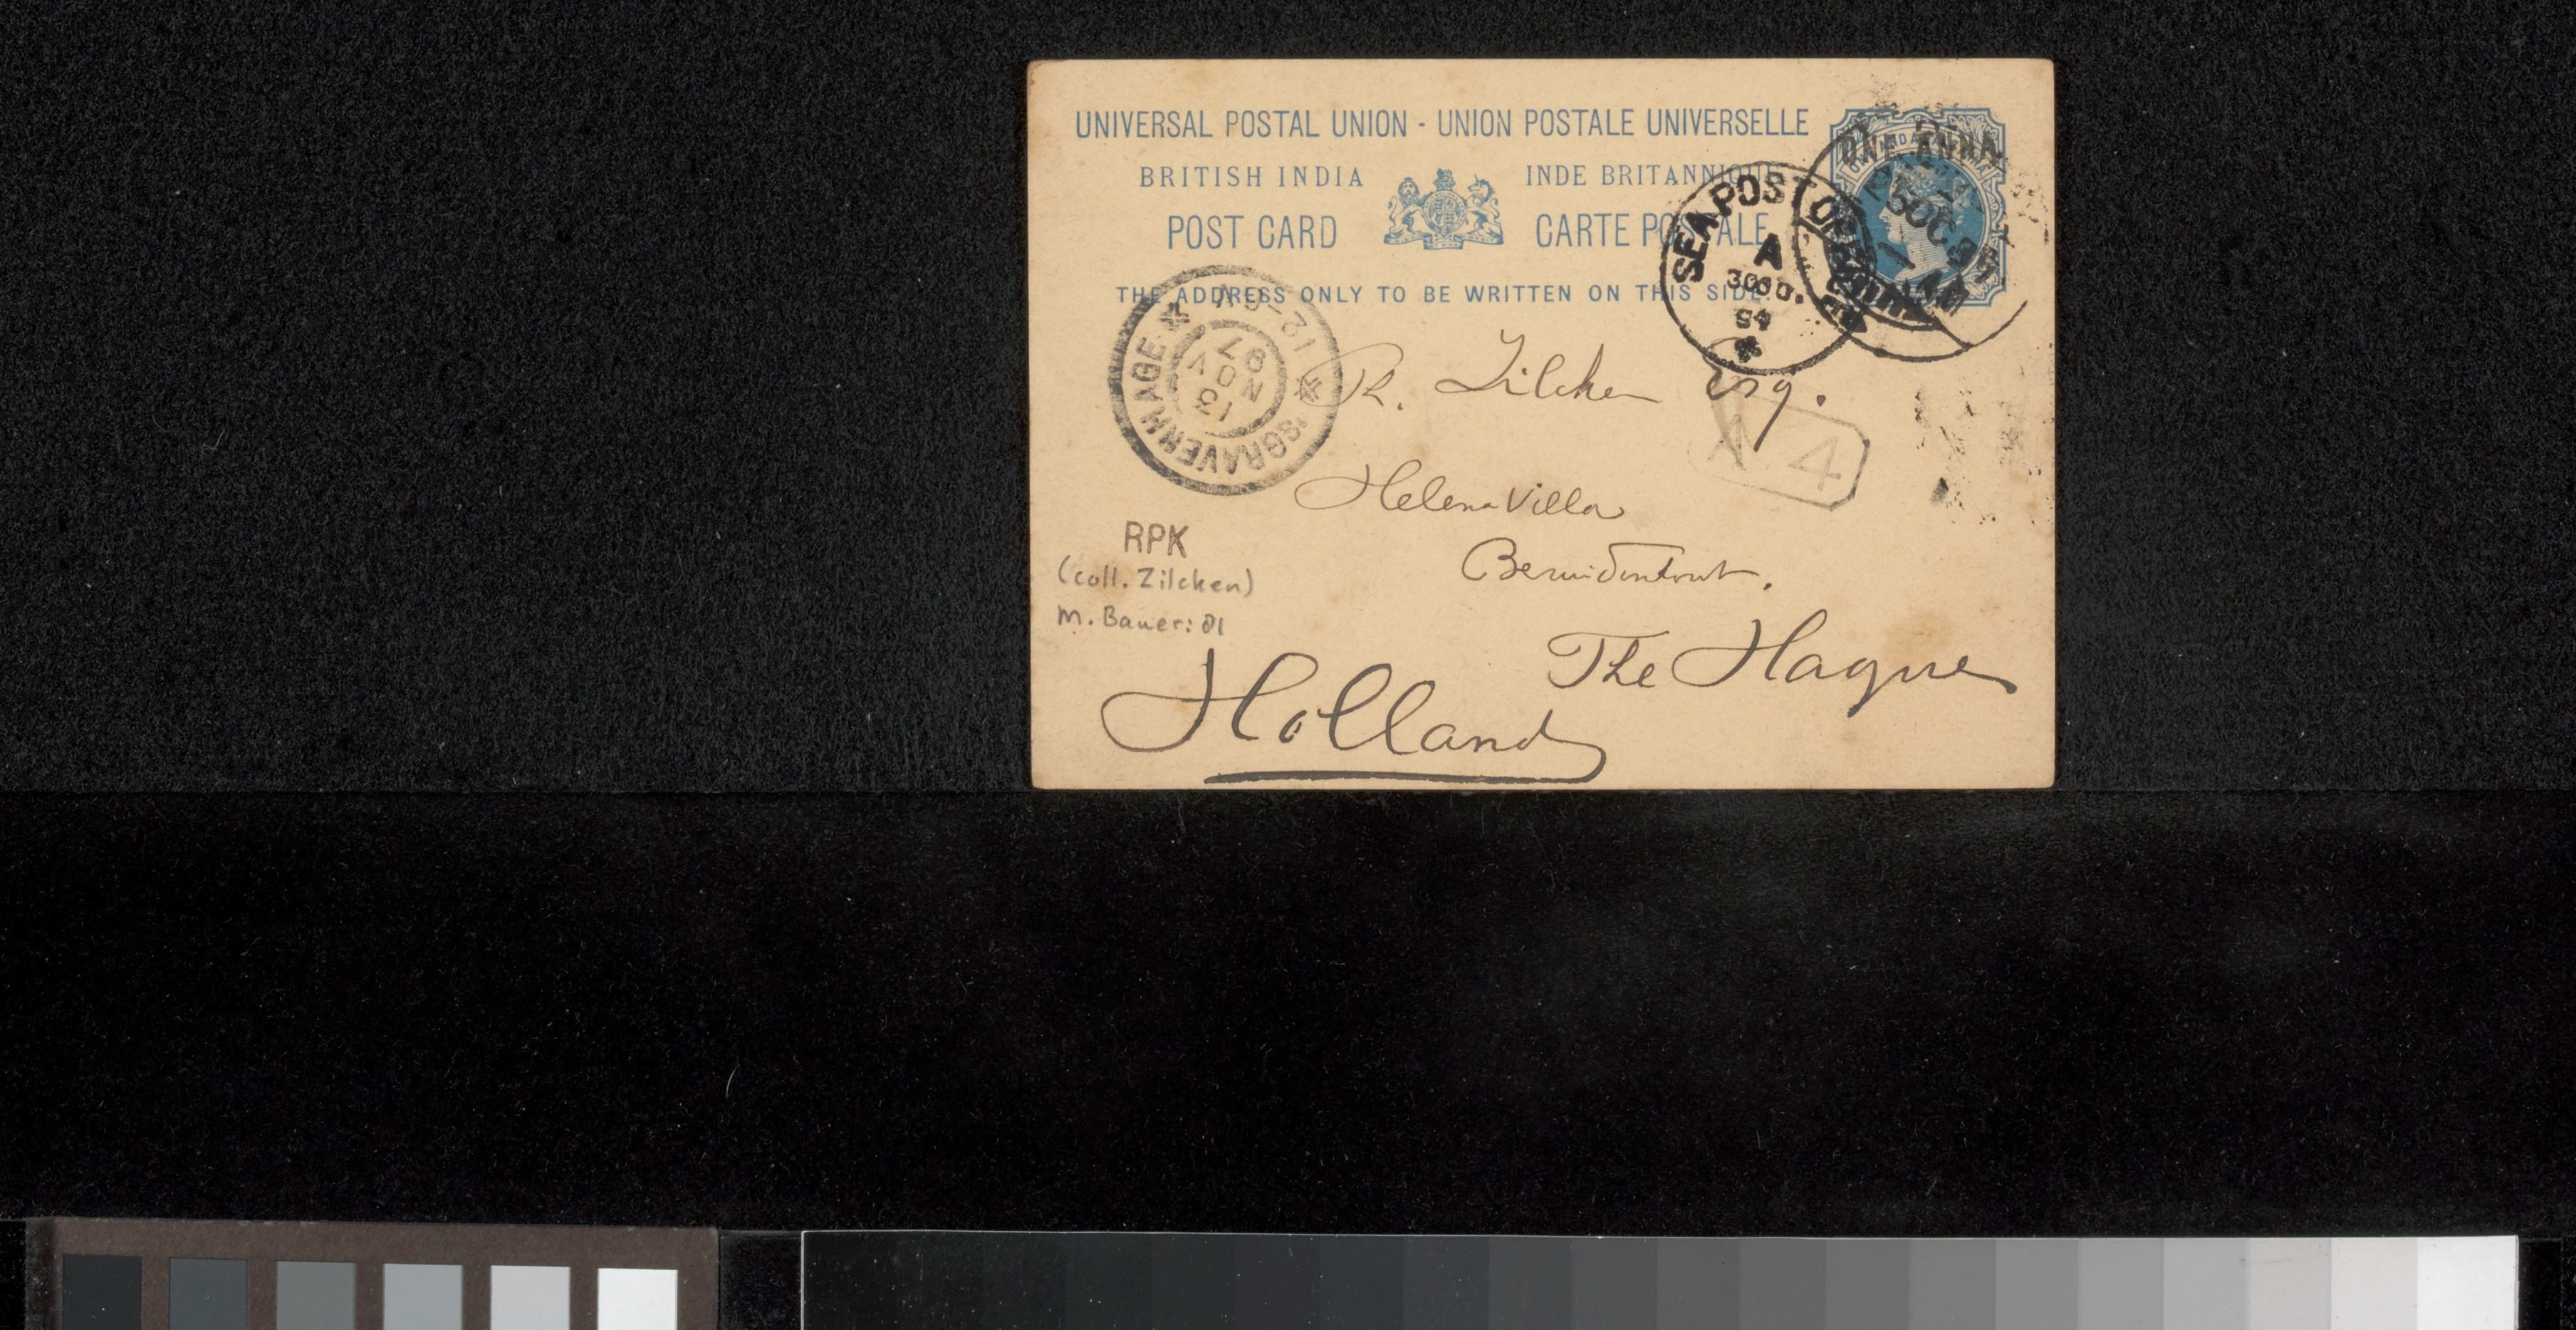 UNIVERSAL POSTAL UNION - UNION POSTALE UNIVERSELLE
BRITISH INDIA
INDE BRITANNIQUE
POST CARD
CARTE POSTALE
THE ADDRESS ONLY TO BE WRITTEN ON THIS SIDE.
ONE ANNA
SEA POST OFFICE
A
'SGRAVENHAGE
12-
13
NOV
97
R. Zilcken Esq.
A 4
Helena Villa
Bezuidenhout.
The Hague
Holland
RPK
(coll. Zilcken)
M. Bauer: 81